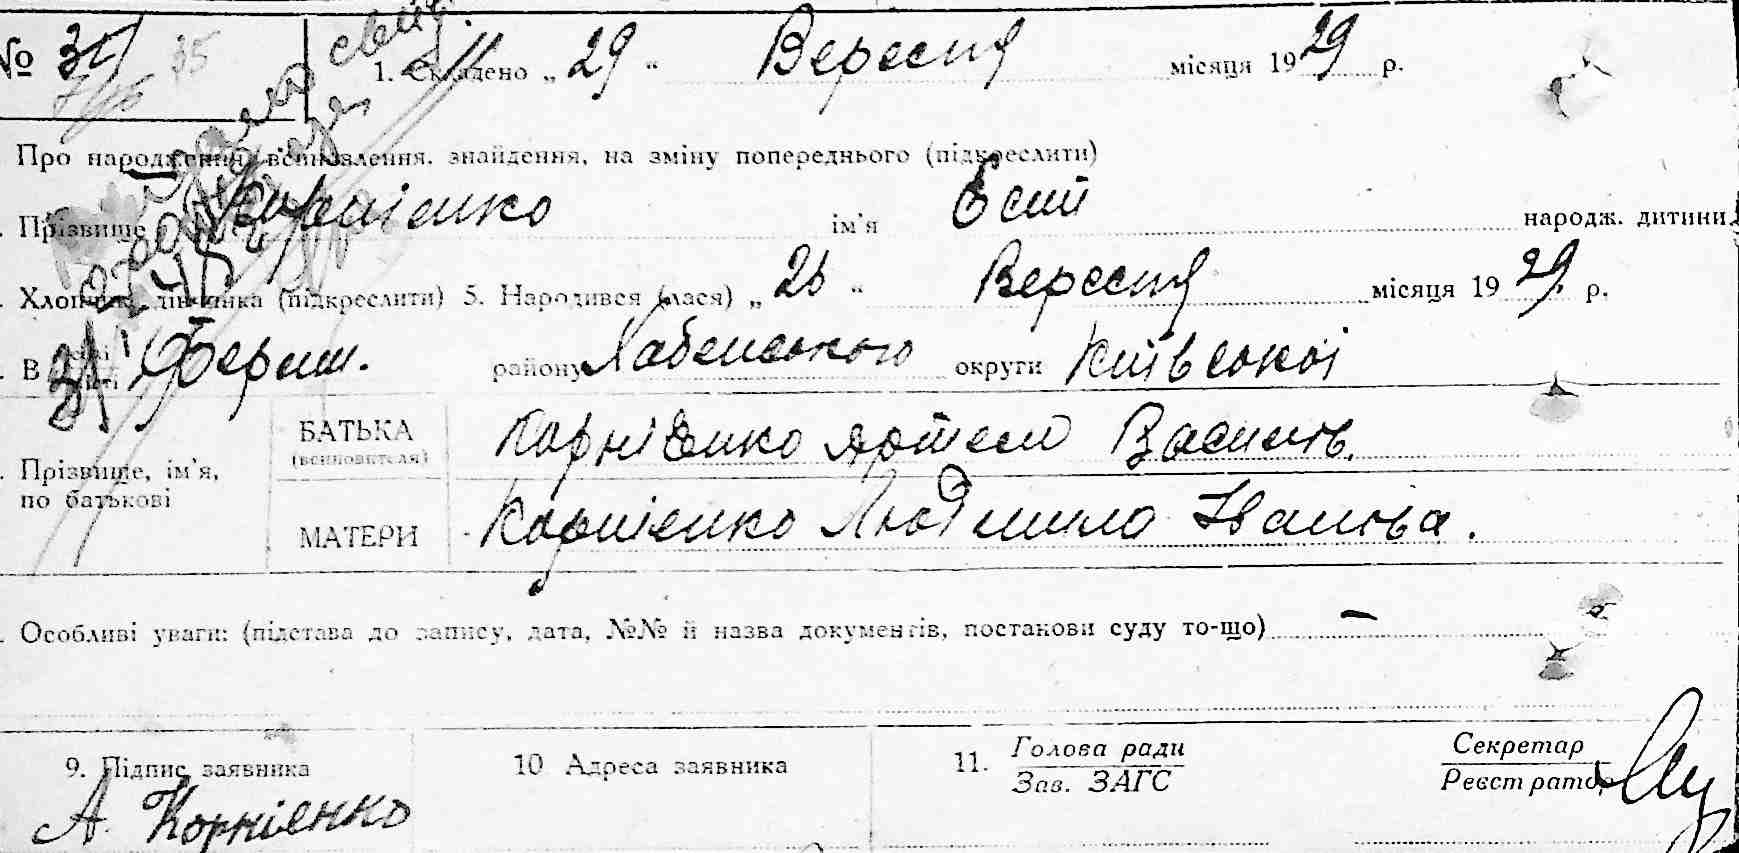 № 1. Складено „ 29 “ Вересня місяця 1929 р.
Про народження, всиновлення, знайдення, на зміну попереднього (підкреслити)
Прізвище Корнієнко ім'я народж. дитини
Хлопчик, дівчинка (підкреслити) 5. Народився (лася) „ “ Вересня місяця 1929. р.
В району округи Київської
Прізвище, ім'я,
по батькові
БАТЬКА
(всиновителя)
Корнієнко Артем Василь.
МАТЕРИ
Корнієнко Людмила Іванова.
Особливі уваги: (підстава до запису, дата, №№ й назва документів, постанови суду то-що) —
9. Підпис заявника 10 Адреса заявника 11. Голова ради Секретар
Зав. ЗАГС Реєстратор
А. Корнієнко